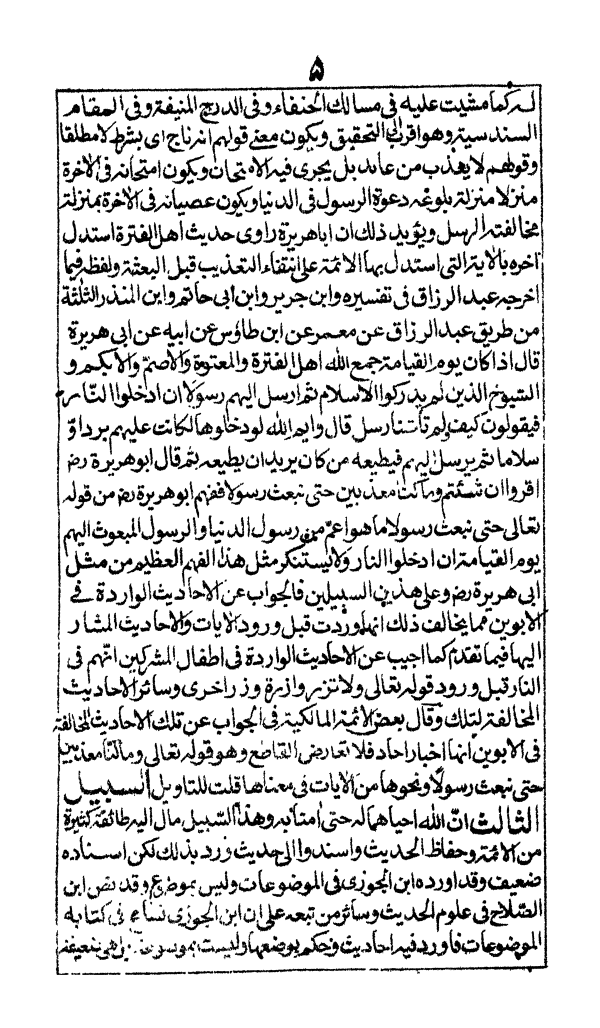 ۵
له كما مشيت عليه فى مسالك الحنفاء وفى الدرج المنيفة وفى المقام
السندسية وهو اقرب الى التحقيق ويكون معنى قولهم انه ناج اى بشرط لا مطلقا
وقولهم لا يعذب من عاند بل يجرى فيه الامتحان ويكون امتحانه فى الاخرة
منزلا منزلة بلوغه دعوة الرسول فى الدنيا ويكون عصيانه فى الاخرة بمنزلة
مخالفته الرسل ويؤيد ذلك ان ابا هريرة راوى حديث اهل الفترة استدل
اخره بالاية التى استدل بها الائمة على انتفاء التعذيب قبل البعثة ولفظه فيما
اخرجه عبد الرزاق فى تفسيره وابن جرير وابن ابى حاتم وابن المنذر الثلثة
من طريق عبد الرزاق عن معمر عن ابن طاؤس عن ابيه عن ابى هريرة
قال اذا كان يوم القيامة جمع الله اهل الفترة والمعتوة والاصم والابكم و
الشيوخ الذين لم يدركوا الاسلام ثم ارسل اليهم رسولا ان ادخلوا النار
فيقولون كيف ولم تأتنا رسل قال وايم الله لو دخلوها لكانت عليهم بردا و
سلاما ثم يرسل اليهم فيطيعه من كان يريد ان يطيعه ثم قال ابو هريرة رض
اقروا ان شئتم وما كنا معذبين حتى نبعث رسولا ففهم ابو هريرة رض من قوله
تعالى حتى نبعث رسولا ما هو اعم من رسول الدنيا والرسول المبعوث اليهم
يوم القيامة ان ادخلوا النار ولا يستنكر مثل هذا الفهم العظيم من مثل
ابى هريرة رض وعلى هذين السبيلين فالجواب عن الاحاديث الواردة فى
الابوين مما يخالف ذلك انها وردت قبل ورود الايات والاحاديث المشار
اليها فيما تقدم كما اجيب عن الاحاديث الواردة فى اطفال المشركين انهم فى
النار قبل ورود قوله تعالى ولا تزر وازرة وزر اخرى وسائر الاحاديث
المخالفة لتلك وقال بعض الائمة المالكية فى الجواب عن تلك الاحاديث المخالفة
فى الابوين انها اخبار احاد فلا تعارض القاطع وهو قوله تعالى وما كنا معذبين
حتى نبعث رسولا ونحوها من الايات فى معناها قلت للتاويل السبيل
الثالث ان الله احياهما له حتى امنا به وهذا السبيل مال اليه طائفة كثيرة
من الائمة وحفاظ الحديث واسندوا الى حديث ورد بذلك لكن اسناده
ضعيف وقد اورده ابن الجوزى فى الموضوعات وليس بموضوع وقد نص ابن
الصلاح فى علوم الحديث وسائر من تبعه على ان ابن الجوزى تسامح فى كتابه
الموضوعات فاورد فيه احاديث وحكم بوضعها وليست بموضوعة بل هى ضعيفة